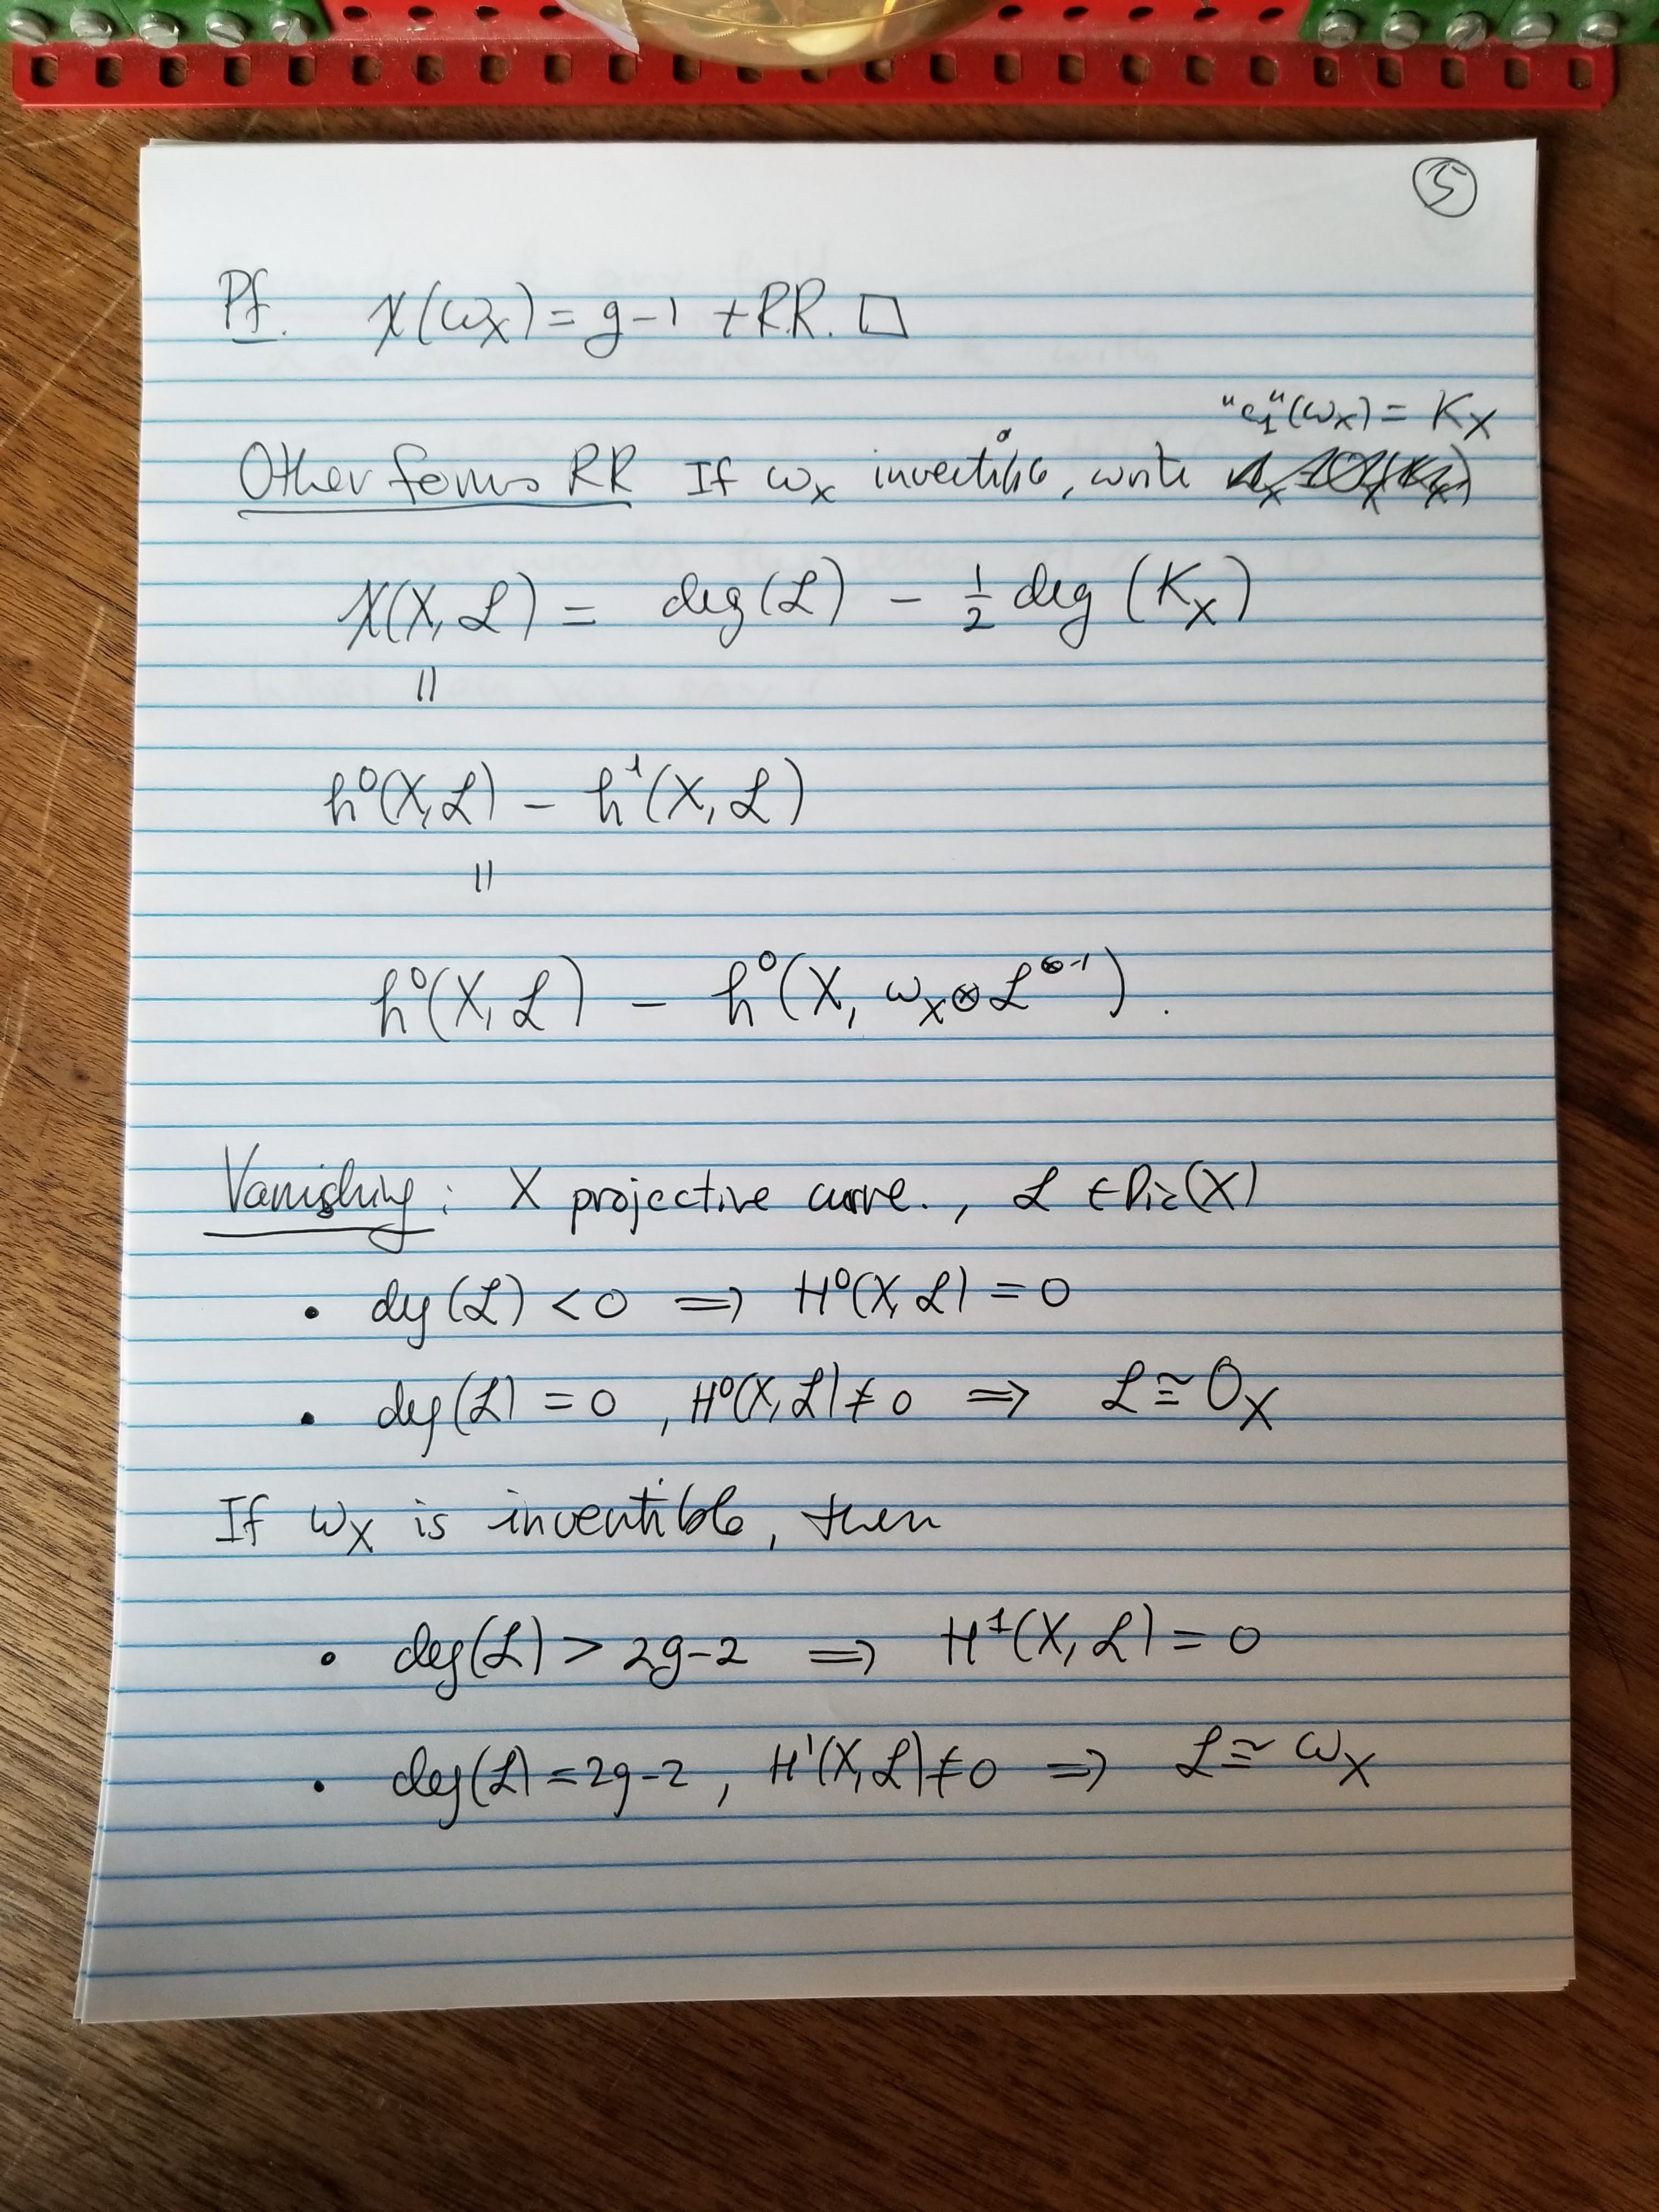 5
Pf. χ(ω_X) = g-1 + RR. □
"c_1"(ω_X) = K_X
Other forms RR If ω_X invertible, write
χ(X, ℒ) = deg(ℒ) - 1/2 deg(K_X)
||
h^0(X, ℒ) - h^1(X, ℒ)
||
h^0(X, ℒ) - h^0(X, ω_X ⊗ ℒ^{⊗-1}).
Vanishing: X projective curve., ℒ ∈ Pic(X)
• deg(ℒ) < 0 ⇒ H^0(X, ℒ) = 0
• deg(ℒ) = 0, H^0(X, ℒ) ≠ 0 ⇒ ℒ ≅ O_X
If ω_X is invertible, then
• deg(ℒ) > 2g-2 ⇒ H^1(X, ℒ) = 0
• deg(ℒ) = 2g-2, H^1(X, ℒ) ≠ 0 ⇒ ℒ ≅ ω_X